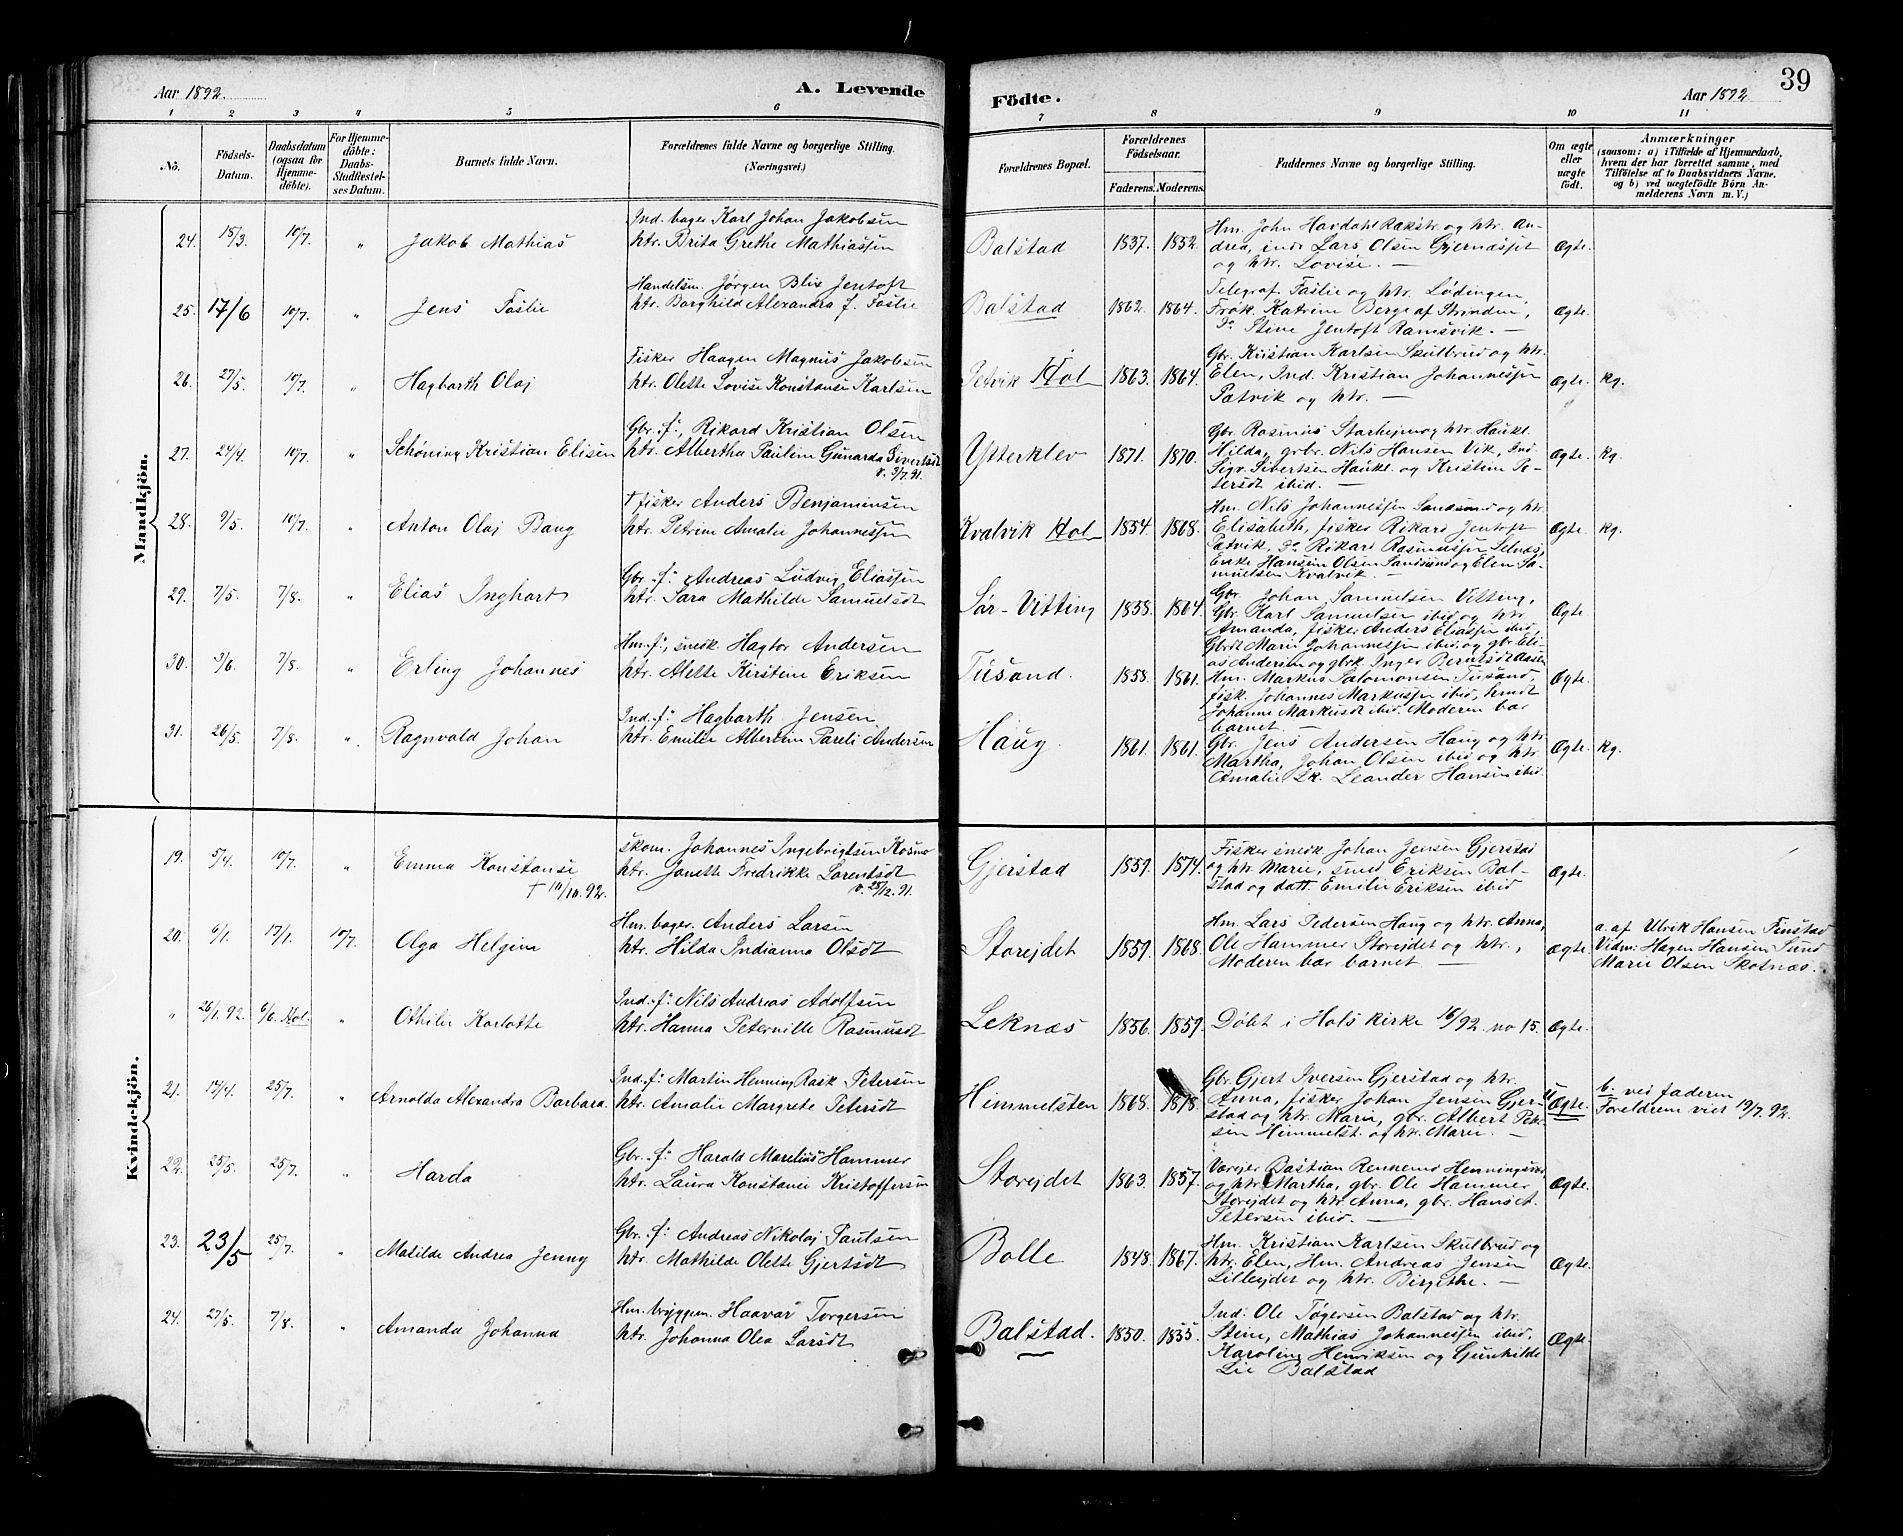 39
Aar 1892.
A. Levende
Födte.
Aar 1892
1 2 3 4 5 6 7 8 9 10 11
No.
Födsels-Datum.
Daabsdatum (ogsaa for Hjemme-döbte).
For Hjemme-döbte: Daabs-Stadfæstel-ses Datum.
Barnets fulde Navn.
Forældrenes fulde Navne og borgerlige Stilling. (Næringsvei.)
Forældrenes Bopæl.
Forældrenes Födselsaar.
Faderens. Moderens.
Faddernes Navne og borgerlige Stilling.
Om ægte eller uægte födt.
Anmærkninger
(saasom: a) i Tilfælde af Hjemmedaab, hvem der har forrettet samme, med Tilföielse af to Daabsvidners Navne. og b) ved uægtefödte Börn An-melderens Navn m. V.)
Mandkjön.
24. 18/3. 10/7. " Jakob Mathias
Ind. bager Karl Johan Jakobsen
htr. Brita Grethe Mathiassen
Balstad 1837. 1852.
Hm. John Havdahl Rækstr. og htr. An-
drea, inds Lars Olsen Gjernæsset
og htr. Lovise. —
Ægte.
25. 17/6 10/7. " Jens Faslie
Handelsm. Jørgen Blix Jentoft
htr. Borghild Alexandra f. Faslie
Balstad 1862. 1864.
Telegraf. Faslie og htr. Lødingen,
Frøk. Katrine Berge af Strinden,
Do Stine Jentoft Ramsvik. —
Ægte.
26. 27/5. 10/7. " Hagbarth Olaj
Fisker Haagen Magnus Jakobsen
htr. Olette Lovise Konstanse Karlsen
Petvik Hol 1863. 1864.
Gbr. Kristian Karlsen Skulbrud og htr.
Elen, Ind. Kristian Johannessen
Pætvik og htr. —
Ægte. kg.
27. 24/4. 10/7. " Schøning Kristian Elisen
Gbr. f., Rikard Kristian Olsen
htr. Albertha Pauline Gunarda Sivertsdt
v. 3/7.91.
Ytterklev 1871. 1870.
Gbr. Rasmus Storheim og htr. Haukl.
Hilda, gbr. Nils Hansen Vik, Ind
Sigv. Sibertsen Haukl. og Kristine Pe-
tersdt ibid. —
Ægte. kg.
28. 9/5. 10/7. " Anton Olaj Bang
† fisker Anders Benjaminsen
htr. Petrine Amalie Johannessen
Kvalvik Hol 1854. 1868.
Hm. Nils Johannessen Sandsund og htr.
Elisabeth, fisker Rikard Jentoft
Pætvik, Do Rikard Rasmussen Selnæs,
Enke Hansine Olsen Sandsund og Elen Sa-
muelsen Kvalvik. —
Ægte kg.
29. 7/5. 7/8. " Elias Inghart
Gbr. f: Andreas Ludvig Eliassen
htr. Sara Mathilde Samuelsdt
Sør-Vitting 1858. 1864.
Gbr. Johan Samuelsen Vitting,
Gbr. Karl Samuelsen ibid og htr.
Amanda, fisker Anders Eliassen ibid,
Gbrdt Marie Johannessen ibid, og gbr. Eli-
as Andersen og gbrk. Inger Berntsdt Assen
Ægte
30. 3/6. 7/8. " Erling Johannes
Hm. f., smed. Hagtor Andersen
htr. Alette Kirstine Eriksen
Tusand. 1858. 1861.
Hm. Markus Salomonsen Tusand,
fisk. Johannes Markussen ibid, hmdt
Johanne Markusdt ibid. Moderen bar
barnet. —
Ægte.
31. 26/5. 7/8. " Ragnvald Johan
Ind. f: Hagbarth Jensen
htr. Emilie Albertine Pareli Andersen
Haug. 1861. 1861.
Gbr. Jens Andersen Haug og htr
Martha, Johan Olsen ibid og htr
Amalie, Leander Hansen ibid.
Ægte. kg.
Kvindekjön.
19. 5/4. 10/7. " Emma Konstanse
† 10/10.92.
skom. Johannes Ingebrigtsen Kosmo
htr. Janette Fredrikke Larentsdt
v. 25/12.91.
Gjerstad 1859. 1874.
Fisker smed. Johan Jensen Gjerstad
og htr. Marie, smed Eriksen Bal-
stad og datt. Emilie Eriksen ibid
Ægte.
20. 6/1. 17/1. 10/7. Olga Helgine
Hm. bager. Anders Larsen
htr. Hilda Indianna Olsdt
Storejdet 1859. 1868.
Hm. Lars Pedersen Haug og htr. Anna,
Ole Hammer Storejdet og htr.,
Moderen bar barnet. —
Ægte
a. af Ulrik Hansen Finstad
Vidn: Hagen Hansen Sund
Marie Olsen Skotnæs.
" 26/1.92. 6/6. Hol. " Othilie Karlotte
Ind. f: Nils Andreas Adolfsen
htr. Hanna Peternille Rasmusdt
Leknæs 1856. 1859.
Døbt i Hols kirke 16/92. no 15.
Ægte.
21. 14/4. 25/7. " Arnolda Alexandra Barbara.
Ind. f: Martin Henning Rask Petersen
htr. Amalie Margrete Petersdt
Himmelsten 1868. 1878.
Gbr. Gjert Iversen Gjerstad og htr.
Anna, fisker Johan Jensen Gjer-
stad og htr. Marie, gbr. Albert Peter-
sen Himmelst. og htr. Marie. —
Ægte.
b. ved faderen
Foreldrene viet 19/7.92.
22. 25/5. 25/7. " Harda
Gbr. f: Harald Marelius Hammer
htr. Laura Konstanse Kristoffersen
Storejdet 1863. 1857.
Værejer Bastian Rennemo Henningsvær
og htr. Martha, gbr. Ole Hammer
Storejdet og htr. Anna, gbr. Hans A.
Petersen ibid. —
Ægte.
23. 23/5 25/7. " Matilde Andrea Jenny
Gbr. f: Andreas Nikolaj Paulsen
htr. Mathilde Olette Gjertsdt
Bolle 1848. 1867.
Hm. Kristian Karlsen Skulbrud og
htr. Elen, Hm. Andreas Jensen
Lilleejdet og htr. Birgithe. —
Ægte.
24. 27/5. 7/8. " Amanda Johanna
Hm. bryggem. Haavar Torgersen
htr. Johanna Olea Larsdt
Balstad. 1850. 1855.
Ind: Ole Tøgersen Balstad og htr.
Stine, Mathias Johannessen ibid,
Karoline Henriksen og Gunhilde
Lie Balstad
Ægte.